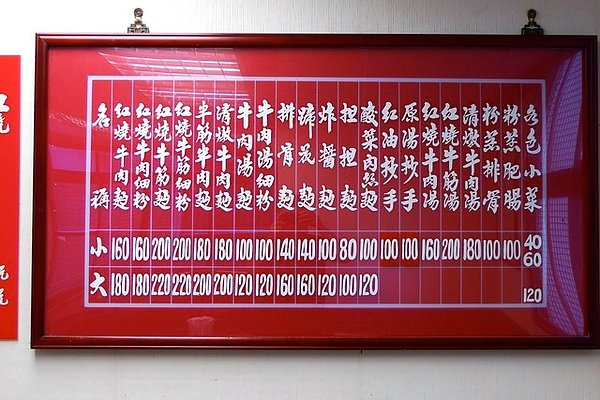 名稱 小 大
紅燒牛肉麵 160 180
紅燒牛肉細粉 160 180
紅燒牛筋麵 200 220
紅燒牛筋細粉 200 220
半筋半肉麵 180 200
清燉牛肉麵 180 200
牛肉湯麵 100 120
牛肉湯細粉 100 120
排骨麵 140 160
蹄花麵 140 160
炸醬麵 100 120
担担麵 80 100
酸菜肉絲麵 100 120
紅油抄手 100
原湯抄手 100
紅燒牛肉湯 160
紅燒牛筋湯 200
清燉牛肉湯 180
粉蒸排骨 100
粉蒸肥腸 100
各色小菜 40 60 120